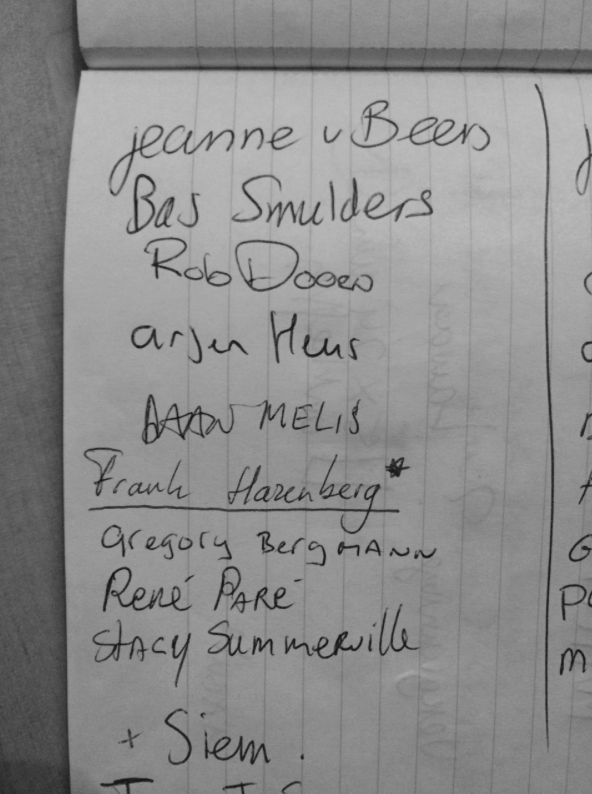 jeanne v Beers
Bas Smulders
Rob Dooren
arjen Heus
DAAN MELIS
Frank Hazenberg*
Gregory BergMANN
René PARé
STACY Summerville
+ Siem.